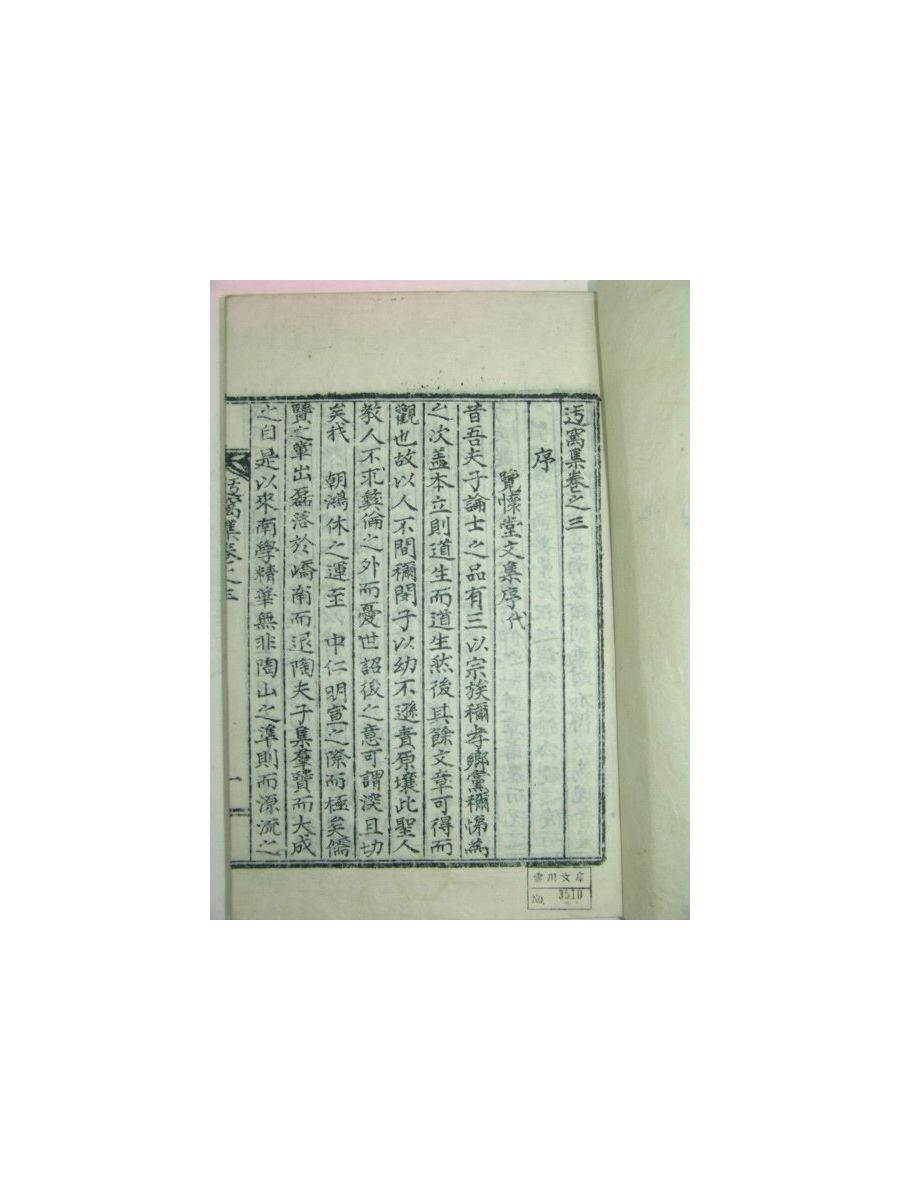 迃窩集卷之三
序
覽懷堂文集序代
昔吾夫子論士之品有三以宗族稱孝鄉黨稱悌爲
之次盖本立則道生而道生然後其餘文章可得而
觀也故以人不間稱閔子以幼不遜責原壤此聖人
教人不求彝倫之外而憂世詔後之意可謂深且切
矣我 朝鴻休之運至 中仁明宣之際而極矣儒
賢之輩出磊落於嶠南而退陶夫子集羣賢而大成
之自是以來南學精華無非陶山之準則而源流之
窩集卷之三
一
雲川文庫
No. 3510